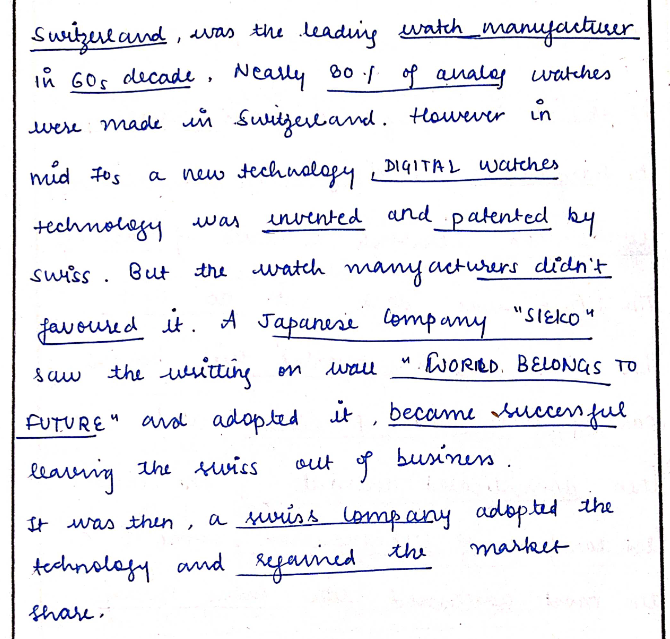 Switzerland, was the leading watch manufacturer
in 60s decade. Nearly 80% of analog watches
were made in Switzerland. However in
mid 70s a new technology, DIGITAL watches
technology was invented and patented by
swiss. But the watch manufacturers didn't
favoured it. A Japanese Company "SIEKO"
saw the writting on wall "WORLD BELONGS TO
FUTURE" and adopted it, became successful
leaving the swiss out of business.
It was then, a swiss company adopted the
technology and regained the market
share.